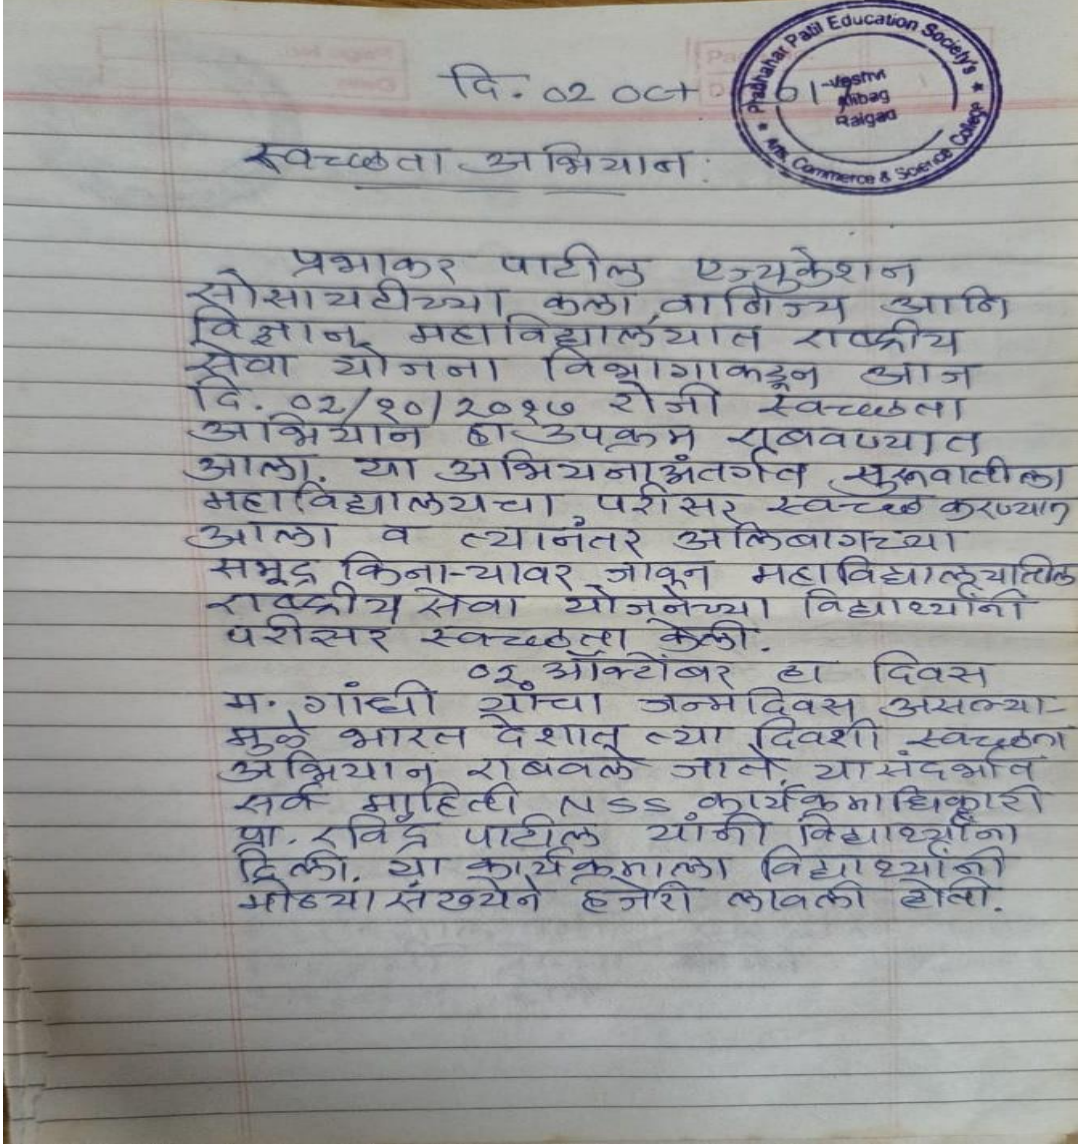 दि. ०२ OCT
Prabhakar Patil Education Society's
Arts, Commerce & Science College
Veshvi
Alibag
Raigad
स्वच्छता अभियान.
प्रभाकर पाटील एज्युकेशन
सोसायटीच्या कला, वाणिज्य आणि
विज्ञान महाविद्यालयात राष्ट्रीय
सेवा योजना विभागाकडून आज
दि. ०२/१०/२०१७ रोजी स्वच्छता
अभियान हा उपक्रम राबवण्यात
आला. या अभियनाअंतर्गत सुरूवातीला
महाविद्यालयचा परीसर स्वच्छ करण्यात
आला व त्यानंतर अलिबागच्या
समूद्र किनाऱ्यावर जावून महाविद्यालयातील
राष्ट्रीय सेवा योजनेच्या विद्यार्थ्यांनी
परीसर स्वच्छता केली.
०२ ऑक्टोंबर हा दिवस
म. गांधी यांचा जन्मदिवस असल्या-
मुळे भारत देशात त्या दिवशी स्वच्छता
अभियान राबवले जाते. यासंदर्भात
सर्व माहिती NSS कार्यक्रमाधिकारी
प्रा. रविंद्र पाटील यांनी विद्यार्थ्यांना
दिली. या कार्यक्रमाला विद्यार्थ्यांनी
मोठ्या संख्येने हजेरी लावली होती.